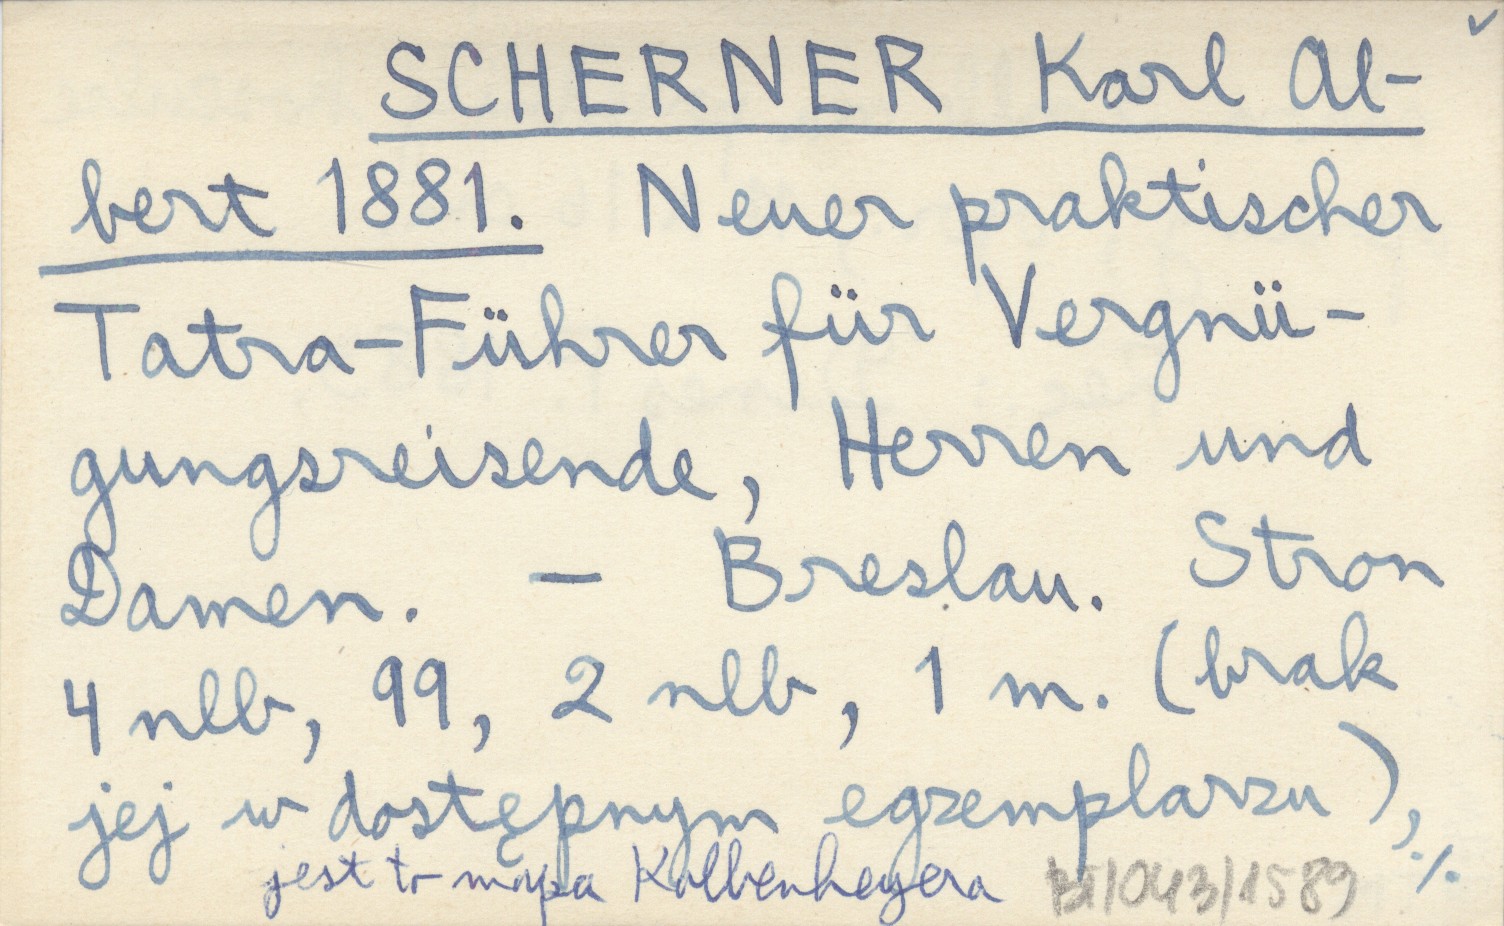 SCHERNER Karl Al-
bert 1881. Neuer praktischer
Tatra-Führer für Vergnü-
gungsreisende, Herren und
Damen. – Breslau. Stron
4 nlb, 99, 2 nlb, 1 m. (brak
jej w dostępnym egzemplarzu),
jest to mapa Kolbenheyera BT/043/1589 ./.